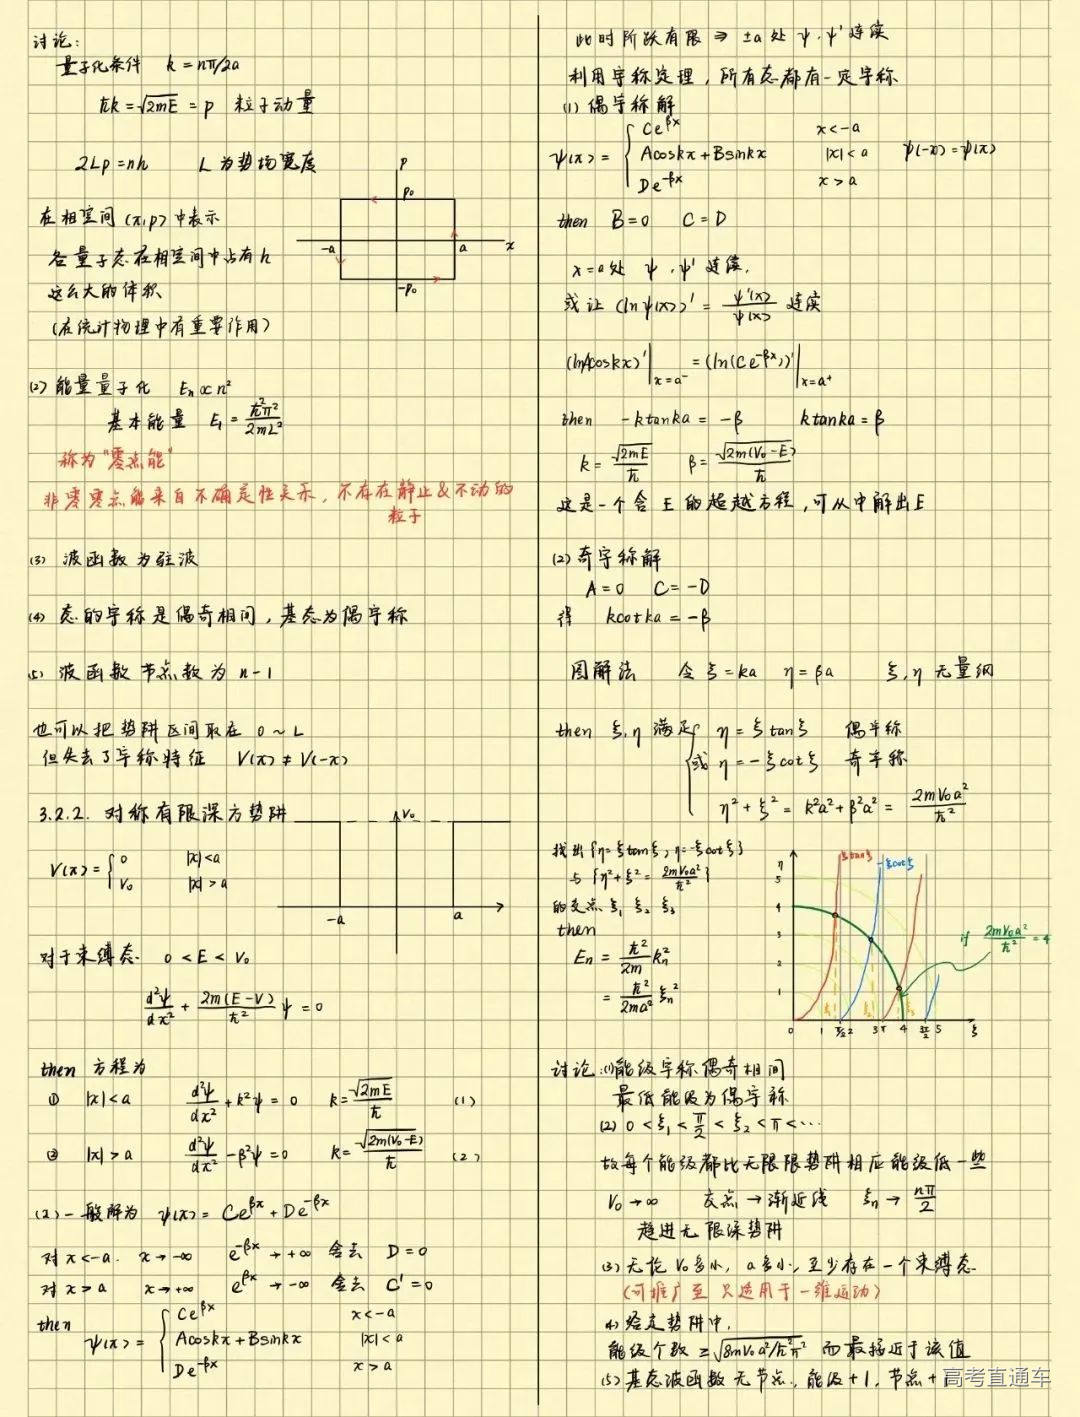 讨论:
量子化条件 k = nπ/2a
ħk = √2mE = p 粒子动量
2Lp = nh L 为势场宽度
p
p₀
-a
a
x
-p₀
在相空间 (x,p) 中表示
各量子态在相空间中占有 h
这么大的体积
(在统计物理中有重要作用)
(2) 能量量子化 Eₙ ∝ n²
基本能量 E₁ = ħ²π²/2mL²
称为"零点能"
非零零点能来自不确定性关系, 不存在静止&不动的
粒子
(3) 波函数为驻波
(4) 态的宇称是偶奇相间, 基态为偶宇称
(5) 波函数节点数为 n-1
也可以把势阱区间取在 0 ~ L
但失去了宇称特征 V(x) ≠ V(-x)
3.2.2. 对称有限深方势阱
V₀
-a
a
V(x) = { 0 |x|<a
V₀ |x|>a
对于束缚态 0 < E < V₀
d²ψ/dx² + 2m(E-V)/ħ² ψ = 0
then 方程为
① |x|<a d²ψ/dx² + k²ψ = 0 k = √2mE/ħ (1)
② |x|>a d²ψ/dx² - β²ψ = 0 k = √2m(V₀-E)/ħ (2)
(2) 一般解为 ψ(x) = Ce^βx + De^-βx
对 x<-a. x→-∞ e^-βx → +∞ 舍去 D=0
对 x>a x→+∞ e^βx → -∞ 舍去 C'=0
then
ψ(x) = { Ce^βx x<-a
Acoskx + Bsinkx |x|<a
De^-βx x>a
此时阶跃有限 ⇒ ±a 处 ψ, ψ' 连续
利用宇称定理, 所有态都有一定宇称
(1) 偶宇称解
ψ(x) = { Ce^βx x<-a
Acoskx + Bsinkx |x|<a ψ(-x)=ψ(x)
De^-βx x>a
then B=0 C=D
x=a处 ψ, ψ' 连续.
或让 (lnψ(x))' = ψ'(x)/ψ(x) 连续
(lnAcoskx)'|x=a⁻ = (ln(Ce^-βx))'|x=a⁺
then -ktanka = -β ktanka = β
k = √2mE/ħ β = √2m(V₀-E)/ħ
这是一个含 E 的超越方程, 可从中解出E
(2) 奇宇称解
A=0 C=-D
得 kcotka = -β
图解法 令 ξ=ka η=βa ξ,η 无量纲
then ξ,η 满足 { η = ξtanξ 偶宇称
或 η = -ξcotξ 奇宇称
η²+ξ² = k²a²+β²a² = 2mV₀a²/ħ²
找出 {η=ξtanξ, η=-ξcotξ}
与 {η²+ξ² = 2mV₀a²/ħ²}
的交点 ξ₁ ξ₂ ξ₃
then
Eₙ = ħ²/2m kₙ²
= ħ²/2ma² ξₙ²
η
ξtanξ
-ξcotξ
5
4
3
2
1
if 2mV₀a²/ħ² = 4
ξ₁ ξ₂ ξ₃
0 1 π/2 2 3 π 4 3π/2 5 ξ
讨论: (1) 能级宇称偶奇相间
最低能级为偶宇称
(2) 0 < ξ₁ < π/2 < ξ₂ < π < ⋯
故每个能级都比无限限势阱相应能级低一些
V₀→∞ 交点→渐近线 ξₙ → nπ/2
趋进无限深势阱
(3) 无论 V₀多小, a多小, 至少存在一个束缚态
(可推广至 只适用于一维运动)
(4) 给定势阱中,
能级个数 ≥ √8mV₀a²/ħ²π² 而最接近于该值
(5) 基态波函数无节点, 能级+1, 节点+1
高考直通车